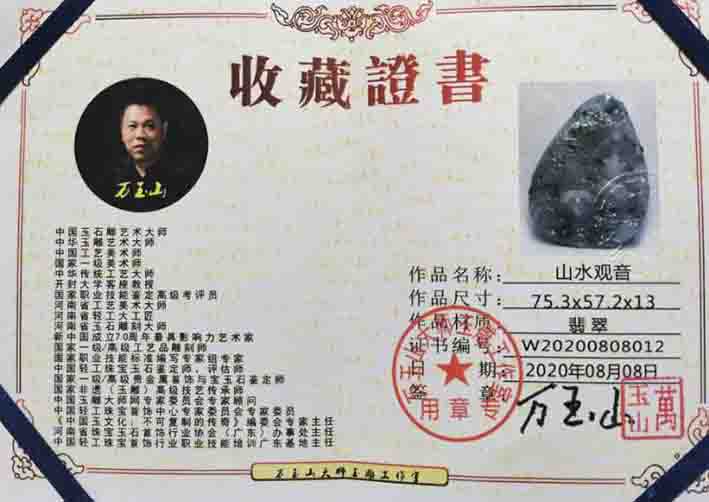 收藏證書
万玉山
中国玉石雕艺术大师
中华玉雕艺术大师
中国工艺美术师
国家一级美术师
中华传统工艺大师
开封大学客座教授
国家职业技能鉴定高级考评员
河南省工艺美术大师
河南省轻工大工匠
河南省玉石雕刻大师
新中国成立70周年最具影响力艺术家
国家一级/高级工艺品雕刻师
国家职业技能标准编写专家组专家
中国轻工珠宝玉石鉴定师，评估师
国家一级/高级贵金属首饰与宝玉石鉴定师
国家非遗（玉雕）高级技艺传承师
中国玉雕大师网专家委员会专家顾问
中国轻工珠宝首饰中心专家委员会专家委员
《中国玉文化：不可复制的传奇》编委会专家主任
河南省珠宝玉石首饰行业协会（广东）办事处主任
中国轻工珠宝首饰行业职业技能培训广东基地主任
作品名称：山水观音
作品尺寸：75.3x57.2x13
作品材质：翡翠
证书编号：W20200808012
日期：2020年08月08日
签章：万玉山
专用章
萬玉山
万玉山大师玉雕工作室